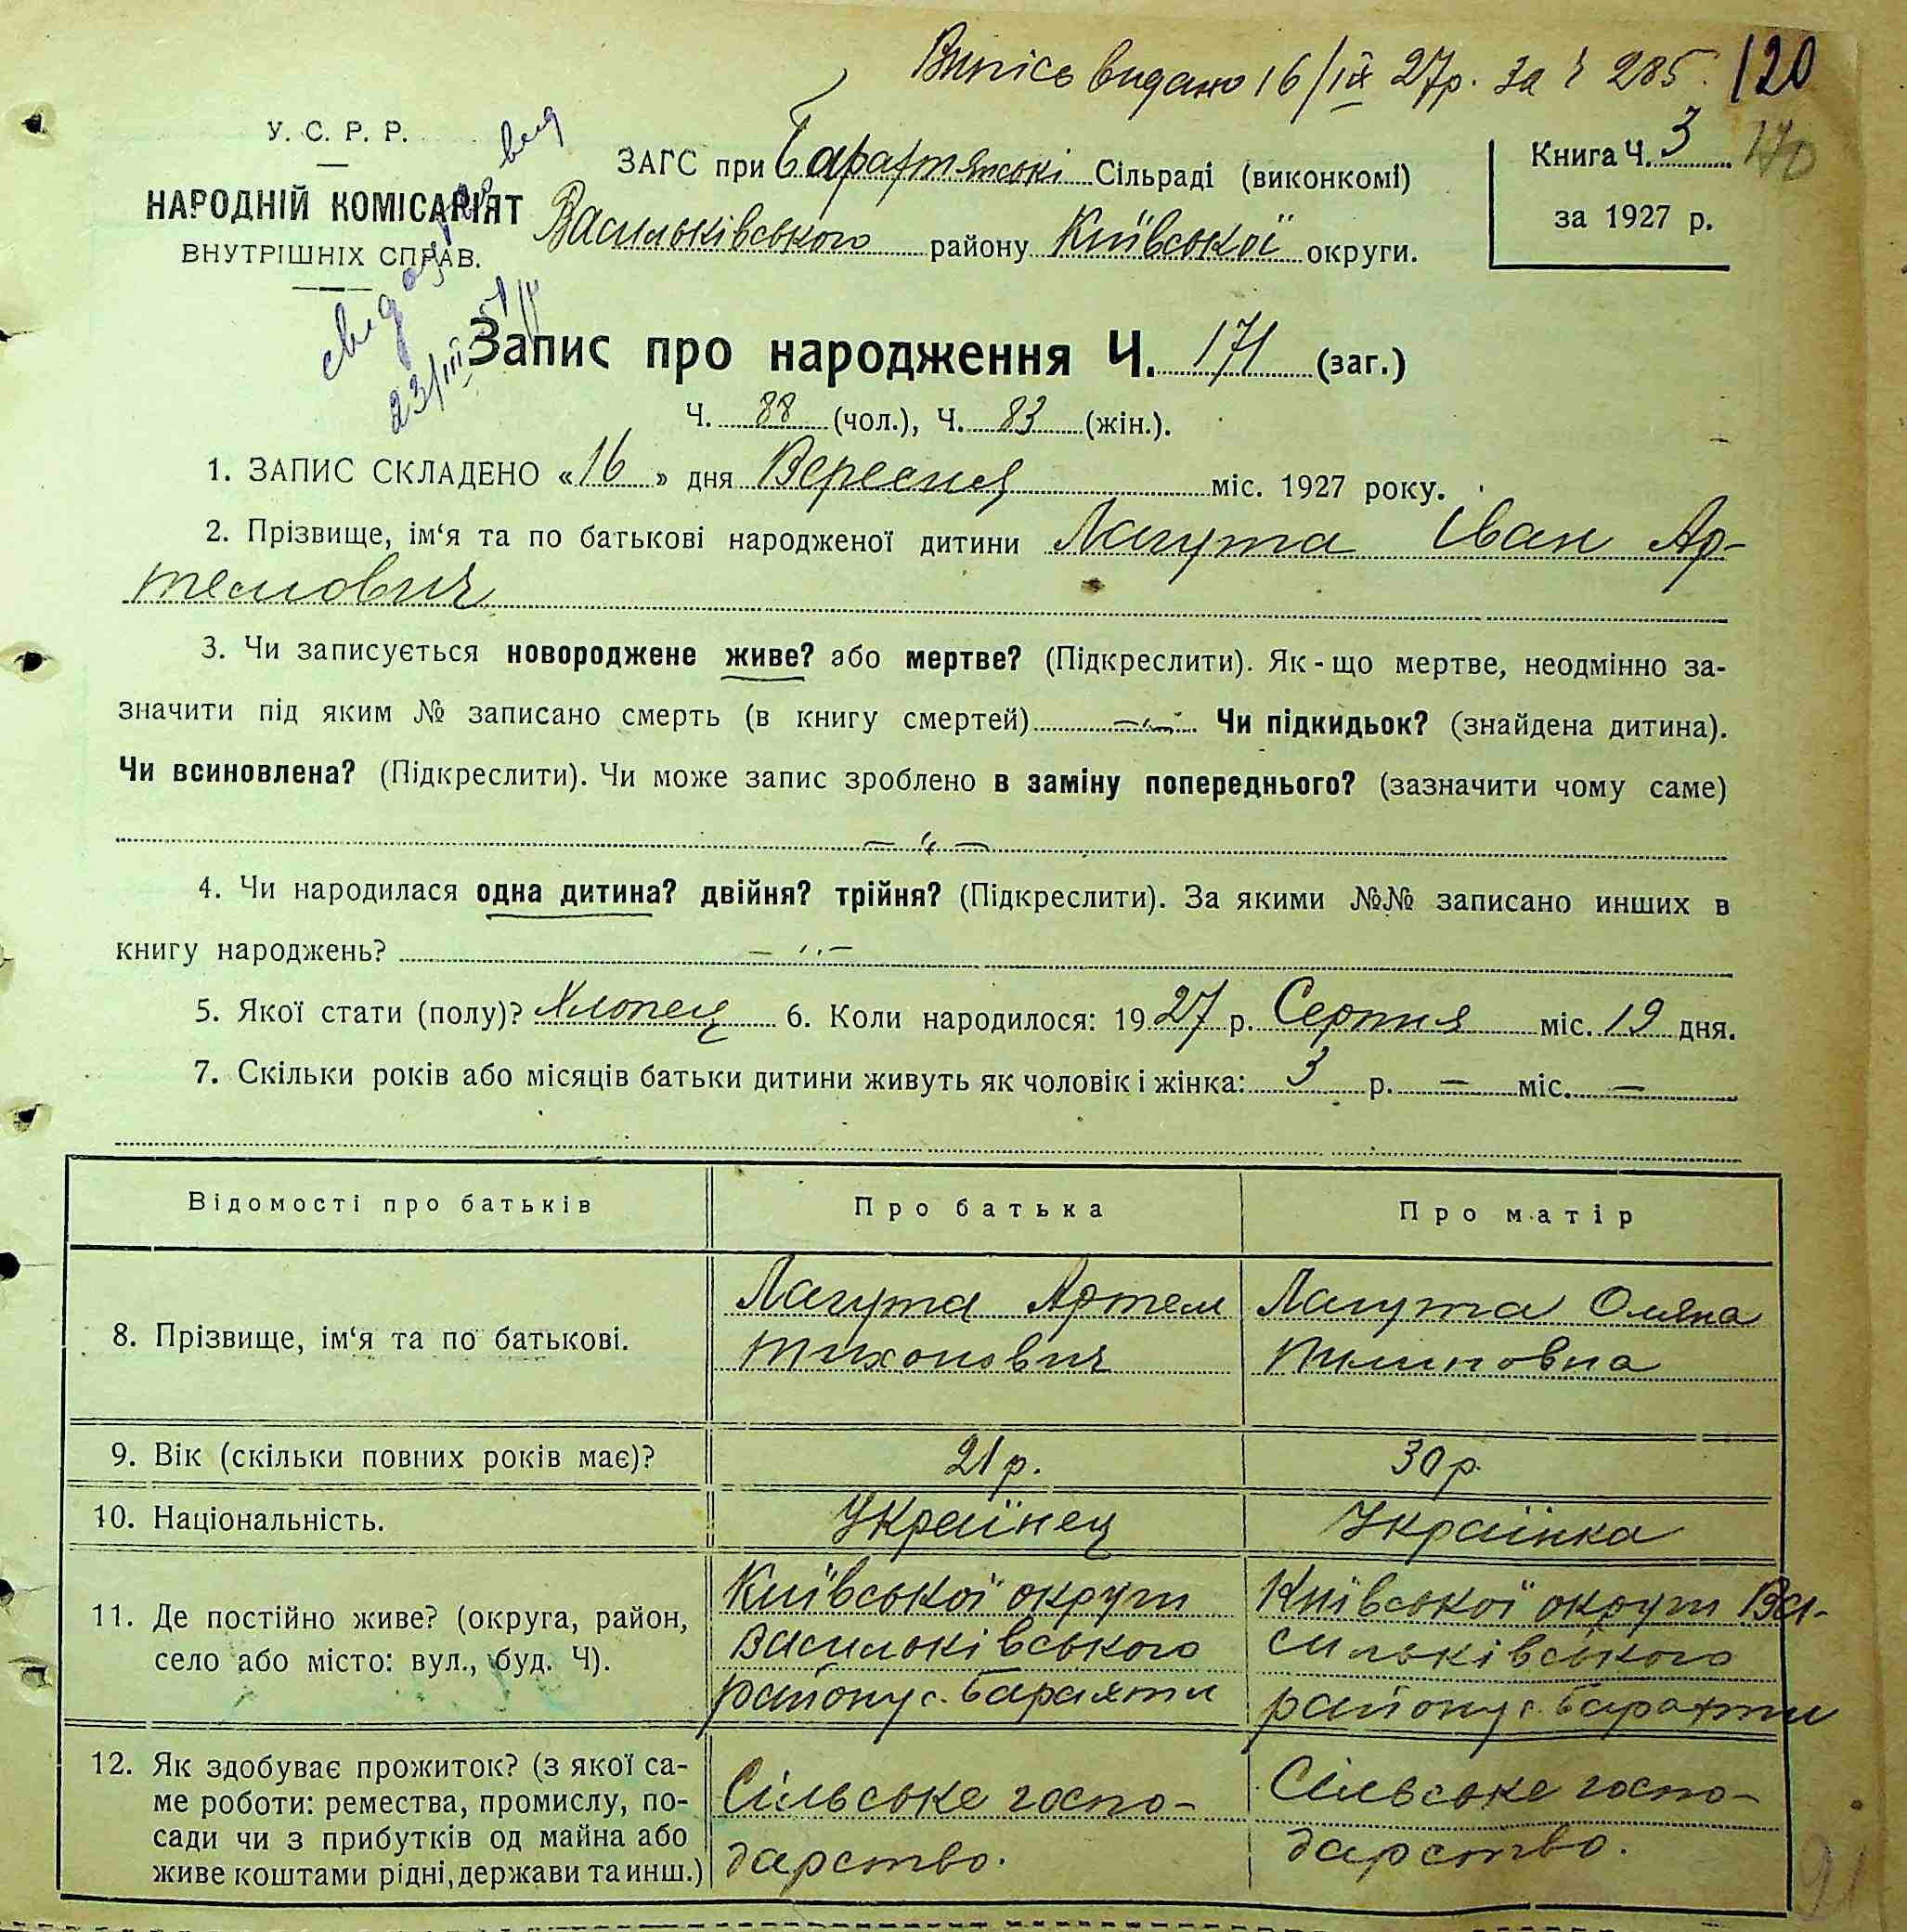 Випісь видано 16/ІХ 27р. за Ч 285. 120
У. С. Р. Р.
НАРОДНІЙ КОМІСАРІЯТ
ВНУТРІШНІХ СПРАВ.
ЗАГС при Барахтянські Сільраді (виконкомі)
Васильківського району Київської округи.
Книга Ч. 3
170
за 1927 р.
23/ІІІ
Запис про народження Ч. 171 (заг.)
Ч. 88 (чол.), Ч. 83 (жін.).
1. ЗАПИС СКЛАДЕНО «16» дня Вересня міс. 1927 року.
2. Прізвище, ім‘я та по батькові народженої дитини Лагута Іван Ар-
темович
3. Чи записується новороджене живе? або мертве? (Підкреслити). Як-що мертве, неодмінно за-
значити під яким № записано смерть (в книгу смертей) —„— Чи підкидьок? (знайдена дитина).
Чи всиновлена? (Підкреслити). Чи може запис зроблено в заміну попереднього? (зазначити чому саме)
— „ —
4. Чи народилася одна дитина? двійня? трійня? (Підкреслити). За якими №№ записано инших в
книгу народжень? — „ —
5. Якої стати (полу)? Хлопець 6. Коли народилося: 1927 р. Серпня міс. 19 дня.
7. Скільки років або місяців батьки дитини живуть як чоловік і жінка: 3 р. — міс. —
Відомості про батьків Про батька Про матір
8. Прізвище, ім‘я та по батькові.
Лагута Артем
Тихонович
Лагута Оляна
Пилиповна
9. Вік (скільки повних років має)? 21 р. 30 р.
10. Національність. Українец Українка
11. Де постійно живе? (округа, район,
село або місто: вул., буд. Ч).
Київської округи
Васильківського
району с. Барахти
Київської округи Ва-
сильківського
району с. Барахти
12. Як здобуває прожиток? (з якої са-
ме роботи: ремества, промислу, по-
сади чи з прибутків од майна або
живе коштами рідні, держави та инш.)
Сільське госпо-
дарство.
Сільське госпо-
дарство.